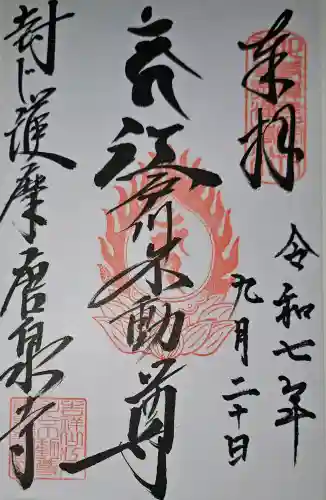 奉拝
令和七年
九月二十日
江戸川不動尊
封じ護摩唐泉寺
吉祥山